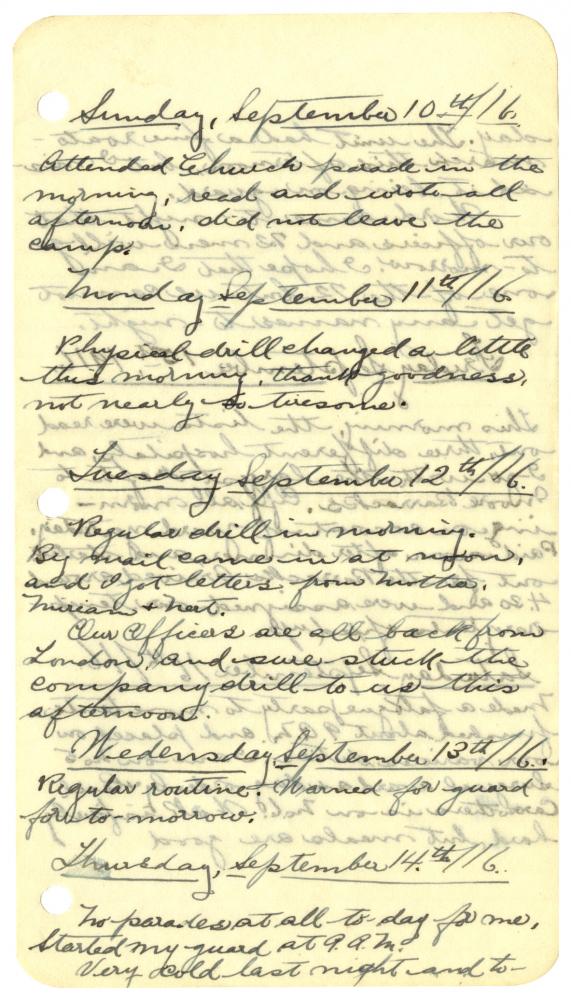 Sunday, September 10th/16.
Attended Church parade in the
morning, read and wrote all
afternoon, did not leave the
camp.
Monday September 11th/16.
Physical drill changed a little
this morning, thank goodness,
not nearly so tiresome.
Tuesday September 12th/16.
Regular drill in morning.
Big mail came in at noon,
and I got letters from Mother,
Miriam & Nert.
Our Officers are all back from
London, and sure stuck the
company drill to us this
afternoon.
Wedensday, September 13th/16.
Regular routine. Warned for guard
for to-morrow.
Thursday, September 14th/16.
No parades at all to-day for me,
started my guard at 9 A.M.
Very cold last night and to-